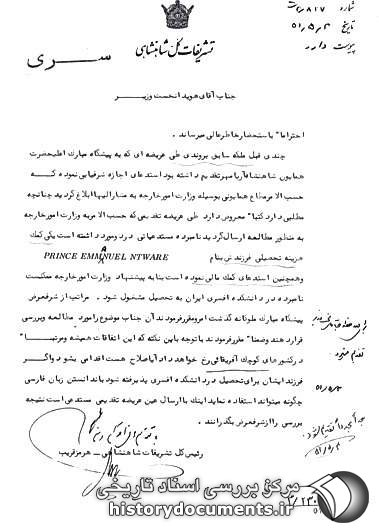 شماره ۸۲۷
تاریخ ۵۱/۵/۴
پیوست دارد
تشریفات کل شاهنشاهی
سری
جناب آقای هویدا نخست وزیر
احتراما" باستحضار خاطر عالی میرساند .
چندی قبل ملکه سابق بروندی طی عریضه ای که به پیشگاه مبارک اعلیحضرت
همایون شاهنشاه آریامهر تقدیم داشته بود استدعای اجازه شرفیابی نموده که
حسب الامر مطاع همایونی بوسیله وزارت امور خارجه به مشارالیها ابلاغ گردید چنانچه
مطلبی دارد کتبا" معروض دارد طی عریضه تقدیمی که حسب الامر به وزارت امور خارجه
به منظور مطالعه ارسال گردید نامبرده مستدعیاتی در دو مورد داشته است یکی کمک
هزینه تحصیلی فرزندش بنام PRINCE EMMANUEL NTWARE
وهمچنین استدعای کمک مالی نموده است بنا به پیشنهاد وزارت امور خارجه ممکنست
نامبرده در دانشکده افسری ایران به تحصیل مشغول شود . مراتب از شرفعرض
پیشگاه مبارک ملوکانه گذشت امر و مقرر فرمودند آن جناب موضوع را مورد مطالعه و بررسی
قرار دهند وضمنا" مقرر فرمودند با توجه باین نکته که این اتفاقات همیشه ومرتبا"
در کشورهای کوچک آفریقائی رخ خواهد داد آیا صلاح هست اقدامی بشود واگر
فرزند ایشان برای تحصیل در دانشکده افسری پذیرفته شود با ندانستن زبان فارسی
چگونه میتواند استفاده نماید اینک با ارسال عین عریضه تقدیمی مستدعی است نتیجه
بررسی را از شرفعرض بگذرانند .
رئیس کل تشریفات شاهنشاهی – هرمز قریب
مرکز بررسی اسناد تاریخی
historydocuments.ir